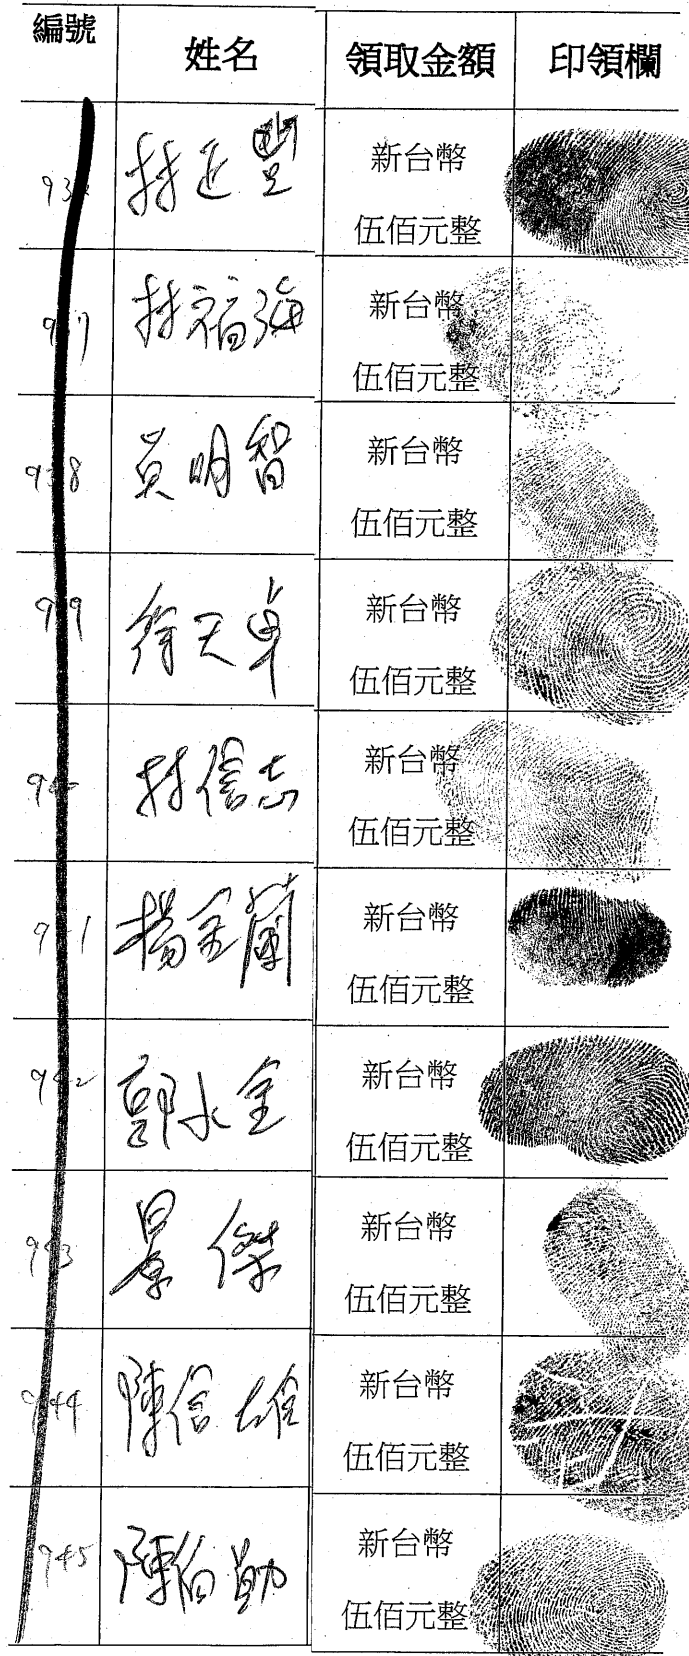 編號 姓名 領取金額 印領欄
林 豐 新台幣
伍佰元整
林福海 新台幣
伍佰元整
938 明智 新台幣
伍佰元整
939 徐天 新台幣
伍佰元整
林信志 新台幣
伍佰元整
941 楊金蘭 新台幣
伍佰元整
942 郭水金 新台幣
伍佰元整
943 景傑 新台幣
伍佰元整
944 陳信雄 新台幣
伍佰元整
945 陳伯勛 新台幣
伍佰元整